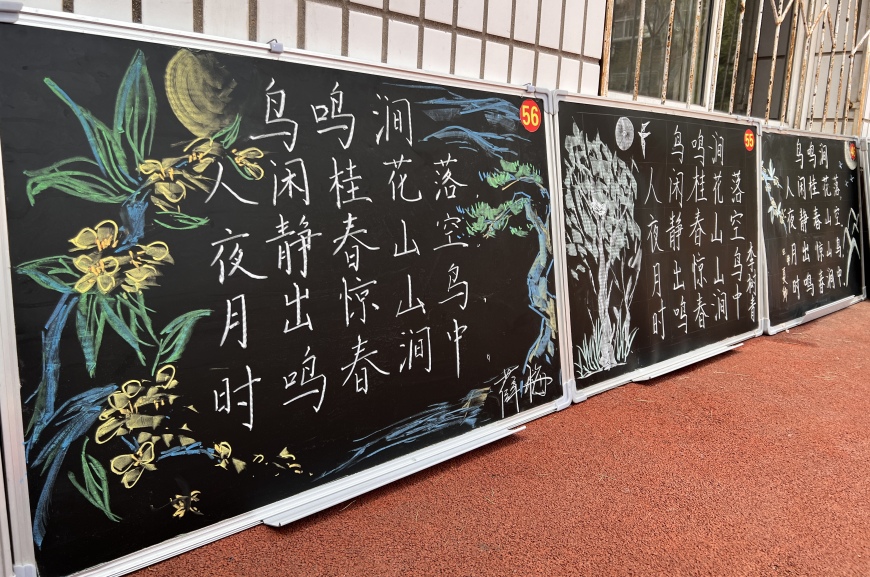 56
鸟鸣涧
人闲桂花落
夜静春山空
月出惊山鸟，
时鸣春涧中。
薛梅
55
鸟鸣涧
人闲桂花落
夜静春山空
月出惊山鸟
时鸣春涧中
李树青
鸟鸣涧
人闲桂花落
夜静春山空
月出惊山鸟
时鸣春涧中